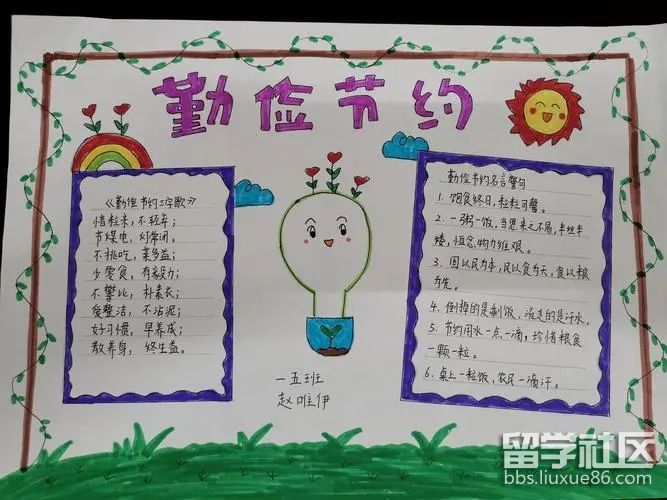 勤俭节约
《勤俭节约三字歌》
惜粒米，不轻弃；
节煤电，灯常闭。
不挑吃，菜多益；
少零食，有毅力；
不攀比，朴素衣；
爱整洁，不沾泥；
好习惯，早养成；
教养身，终生益。
一五班
赵唯伊
勤俭节约名言警句
1. 饱食终日，粒粒可警。
2. 一粥一饭，当思来之不易，半丝半
缕，恒念物力维艰。
3. 国以民为本，民以食为天，食以粮
为先。
4. 倒掉的是剩饭，流走的是汗水。
5. 节约用水一点一滴，珍惜粮食
一颗一粒。
6. 桌上一粒饭，农民一滴汗。
留学社区
bbs.liuxue86.com